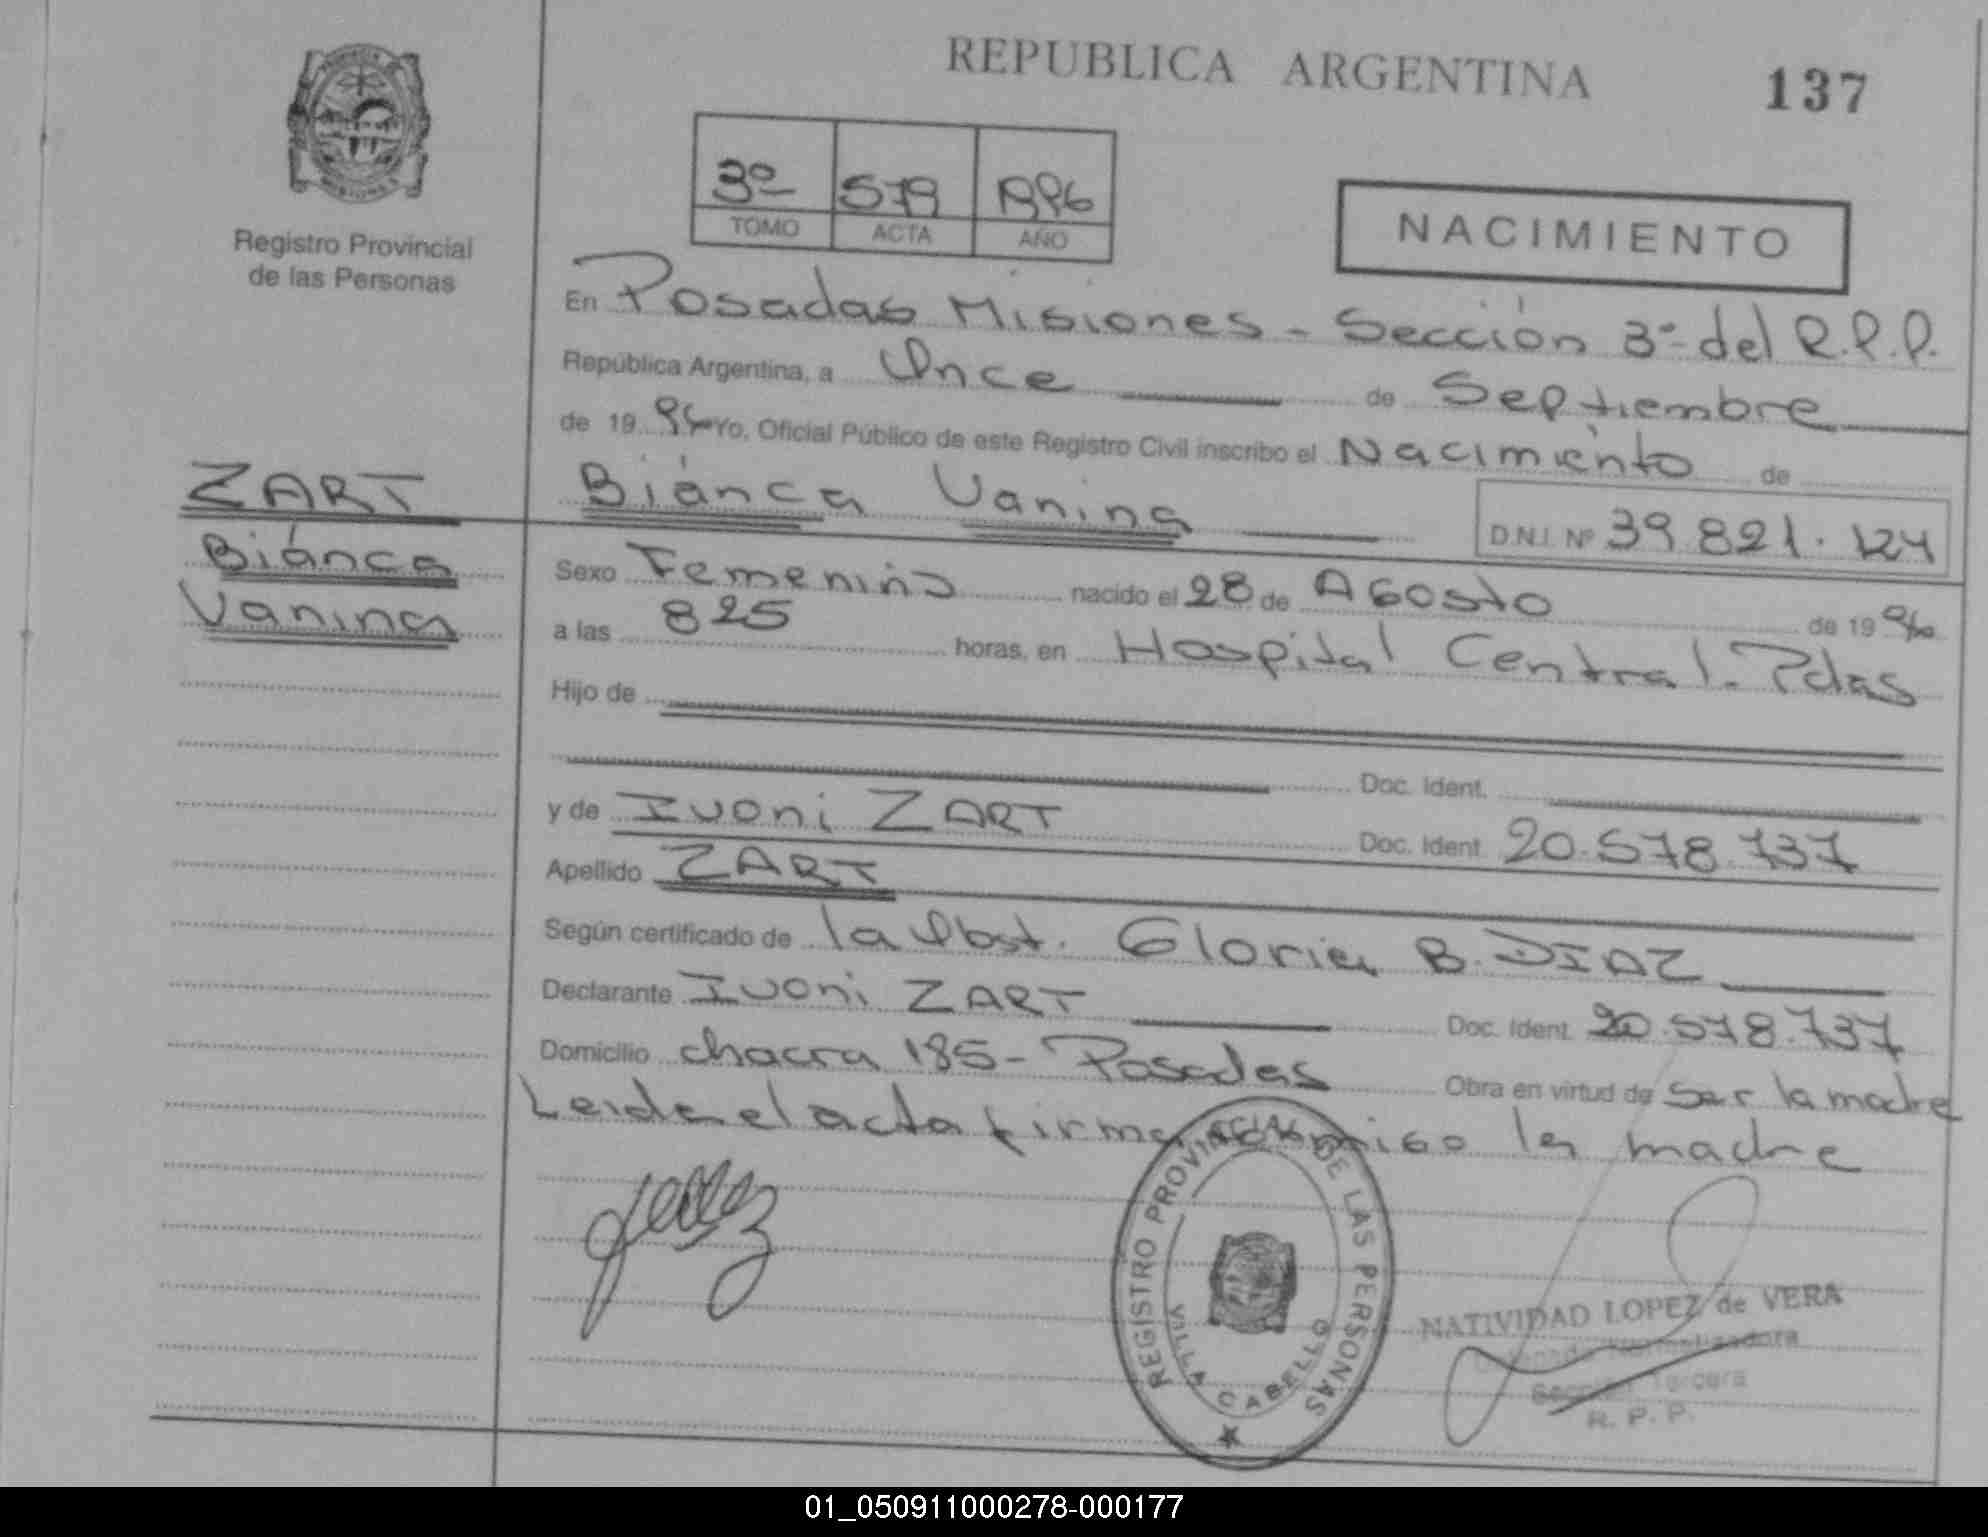 REPUBLICA ARGENTINA
137
3º 579 1996
TOMO ACTA AÑO
NACIMIENTO
Registro Provincial
de las Personas
En Posadas Misiones - Sección 3ª del R.P.P.
República Argentina, a Once de Septiembre
de 19 96 Yo, Oficial Público de este Registro Civil inscribo el Nacimiento de
ZART
Biánca
Vanina
Biánca Vanina
D.N.I. Nº 39.821.124
Sexo Femenino nacido el 28 de Agosto de 19 96
a las 825 horas, en Hospital Central - Pdas
Hijo de
Doc. Ident.
y de Ivoni ZART Doc. Ident. 20.578.737
Apellido ZART
Según certificado de la Obst. Gloria B. DIAZ
Declarante Ivoni ZART Doc. Ident. 20.578.737
Domicilio chacra 185 - Posadas Obra en virtud de ser la madre
Leida el acta firma conmigo la madre
REGISTRO PROVINCIAL DE LAS PERSONAS
VILLA CABELLO
NATIVIDAD LOPEZ de VERA
Sección Tercera
R. P. P.
01_050911000278-000177